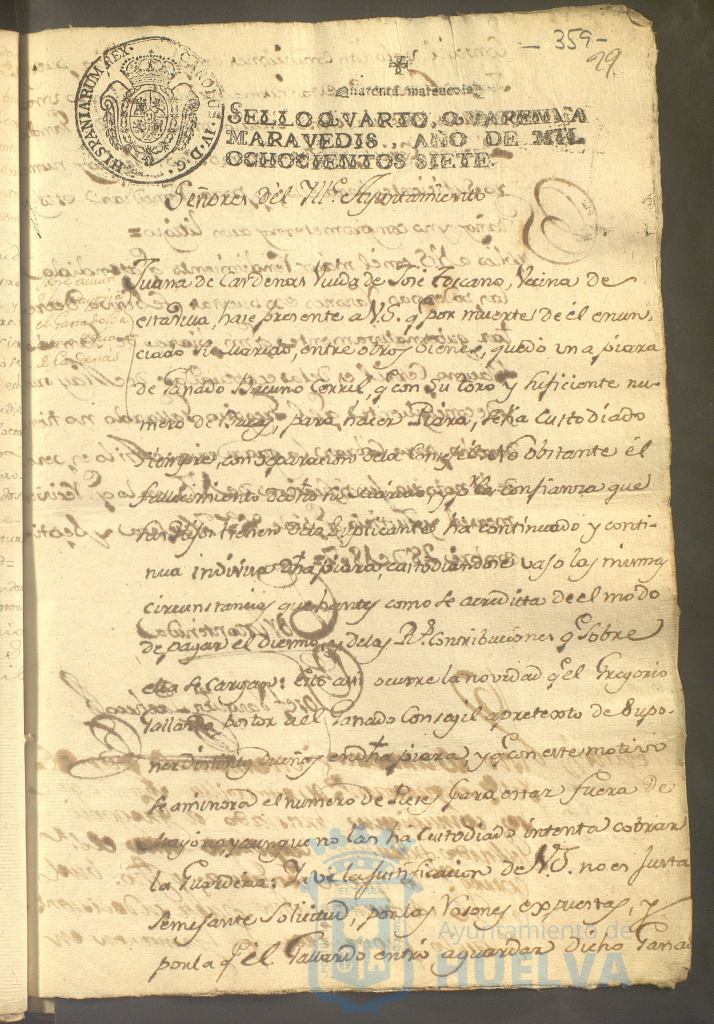 - 359 -
29.
HISPANIARUM REX. CAROLUS IV D.G.
Quarenta maravedis
SELLO QVARTO, QVARENTA
MARAVEDIS, AÑO DE MIL
OCHOCIENTOS SIETE.
Señores del Ill.e Ayuntamiento
Juana de Cardenas Viuda de José Toscano, Vecina de
esta Villa, hase presente a V.S. q.e por muerte de él enun-
ciado su marido, entre otros bienes, quedó una piara
de Ganado Bacuno Cerril, q.e con su toro y suficiente nu-
mero de Bacas, para hacer Piara, se ha Custodiado
siempre, con separacion de la Consegil: No obstante él
fallecimiento de dho mi marido y por la confianza que
sus hijos tienen de la suplicante ha continuado y conti-
nua indivisa dha piara, custodiandose vaso las mismas
circunstancias que hantes como se acredita de el modo
de pagar el diezmo, y de las R.s Contribuciones q.e sobre
ella se cargan: Esto asi ocurre la novedad q.e el Gregorio
Gallardo postor del Ganado Consegil apretexto de supo-
ner distintos dueños en dha piara, y q.e con este motivo
se aminora el numero de Reses para estar fuera de
y aunque no las ha Custodiado intenta cobrar
la Guarderia: Ya vé la justificacion de V.S. no es Justa
semejante Solicitud, por las Rasones expuestas, y
por la q.e el Gallardo entró aguardar dicho Gana
Ayuntamiento de
HUELVA